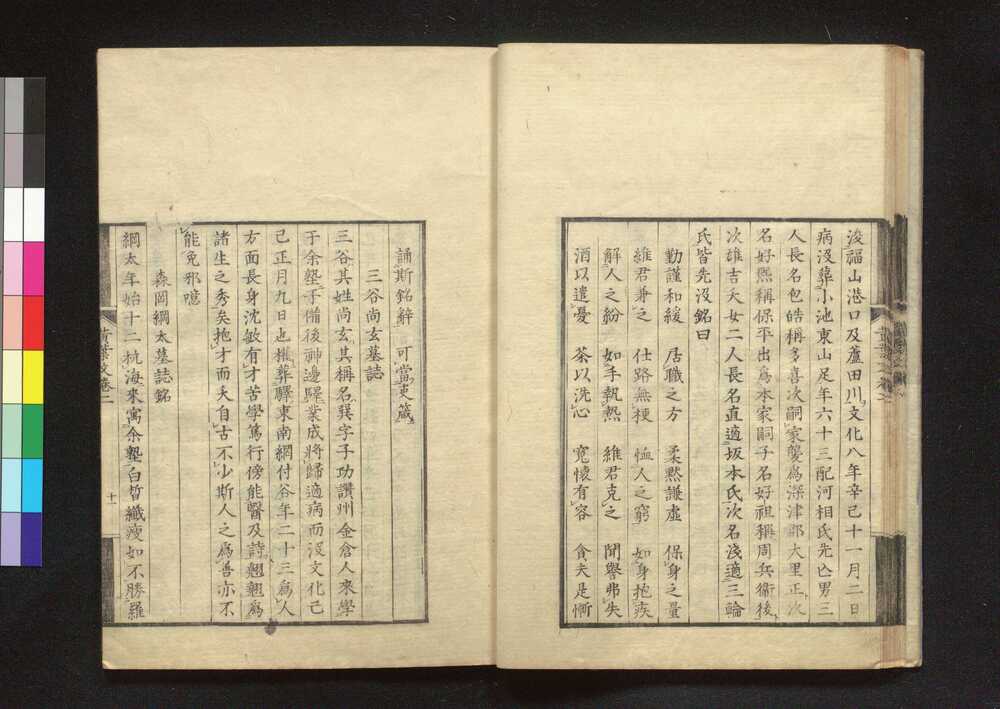 浚福山港口及蘆田川文化八年辛己十一月二日
病沒葬小池東山足年六十三配河相氏先亾男三
人長名包皓稱多喜次嗣家襲為深津郡大里正次
名好熈稱保平出為本家嗣子名好祖稱周兵衛後
次雄吉夭女二人長名直適坂本氏次名淺適三輪
氏皆先沒銘曰
勤謹和緩 居職之方 柔黙謙虛 保身之量
維君兼之 仕路無梗 恤人之窮 如身抱疾
解人之紛 如手執熱 維君克之 聞譽弗失
酒以遣憂 茶以洗心 寬懷有容 貪夫是慚
誦斯銘辭 可當吏箴
三谷尚玄墓誌
三谷其姓尚玄其稱名巽字子功讚州金倉人來學
于余塾于備後神邊驛業成將歸適病而沒文化己
己正月九日也權葬驛東南網付谷年二十三為人
方面長身沈敏有才苦學篤行傍能醫及詩翹翹為
諸生之秀矣抱才而夭自古不少斯人之為善亦不
能免邪噫
森岡綱太墓誌銘
綱太年始十二杭海來寓余塾白晳纖瘦如不勝羅
黄葉文卷二
十一